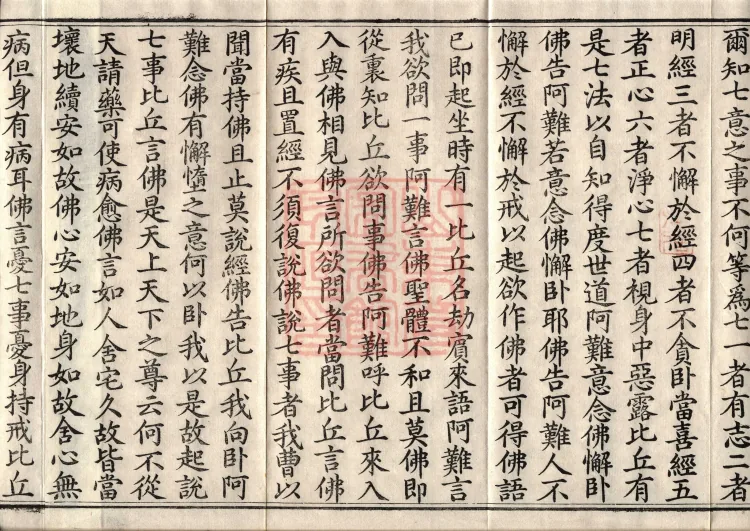 爾知七意之事不何等爲七一者有志二者
明經三者不懈於經四者不貪卧當喜經五
者正心六者淨心七者視身中惡露比丘有
是七法以自知得度世道阿難意念佛懈卧
佛告阿難若意念佛懈卧耶佛告阿難人不
懈於經不懈於戒以起欲作佛者可得佛語
已即起坐時有一比丘名劫賓來語阿難言
我欲問一事阿難言佛聖體不和且莫佛即
從裏知比丘欲問事佛告阿難呼比丘來入
入與佛相見佛言所欲問者當問比丘言佛
有疾且置經不須復說佛說七事者我曹以
聞當持佛且止莫說經佛告比丘我向卧阿
難念佛有懈憜之意何以卧我以是故起說
七事比丘言佛是天上天下之尊云何不從
天請藥可使病愈佛言如人舍宅久故皆當
壞地續安如故佛心安如地身如故舍心無
病但身有病耳佛言憂七事憂身持戒比丘